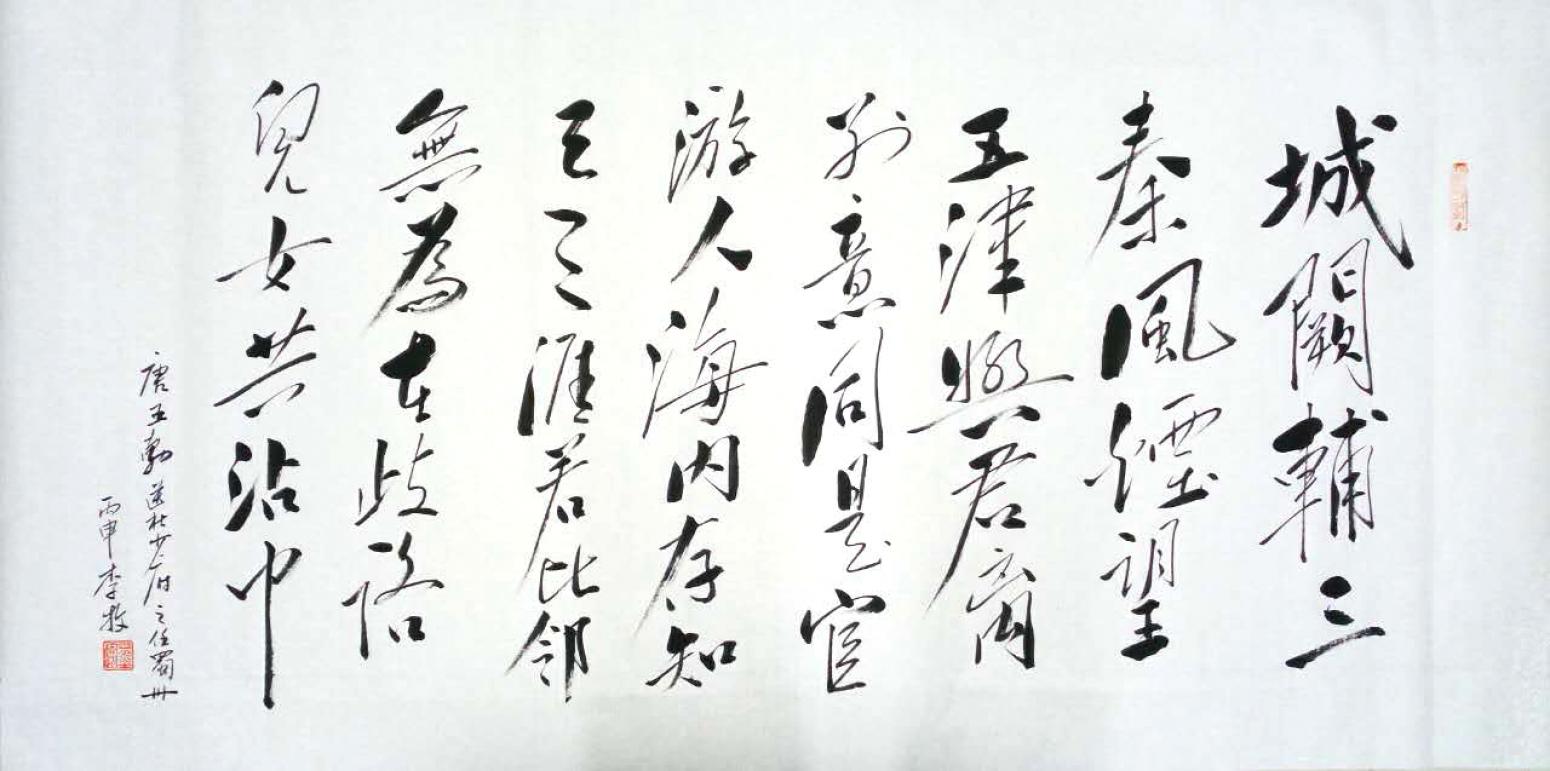 城闕輔三
秦風煙望
五津與君离
别意同是宦
游人海内存知
己天涯若比鄰
無為在歧路
兒女共沾巾
唐王勃送杜少府之任蜀州
丙申李牧